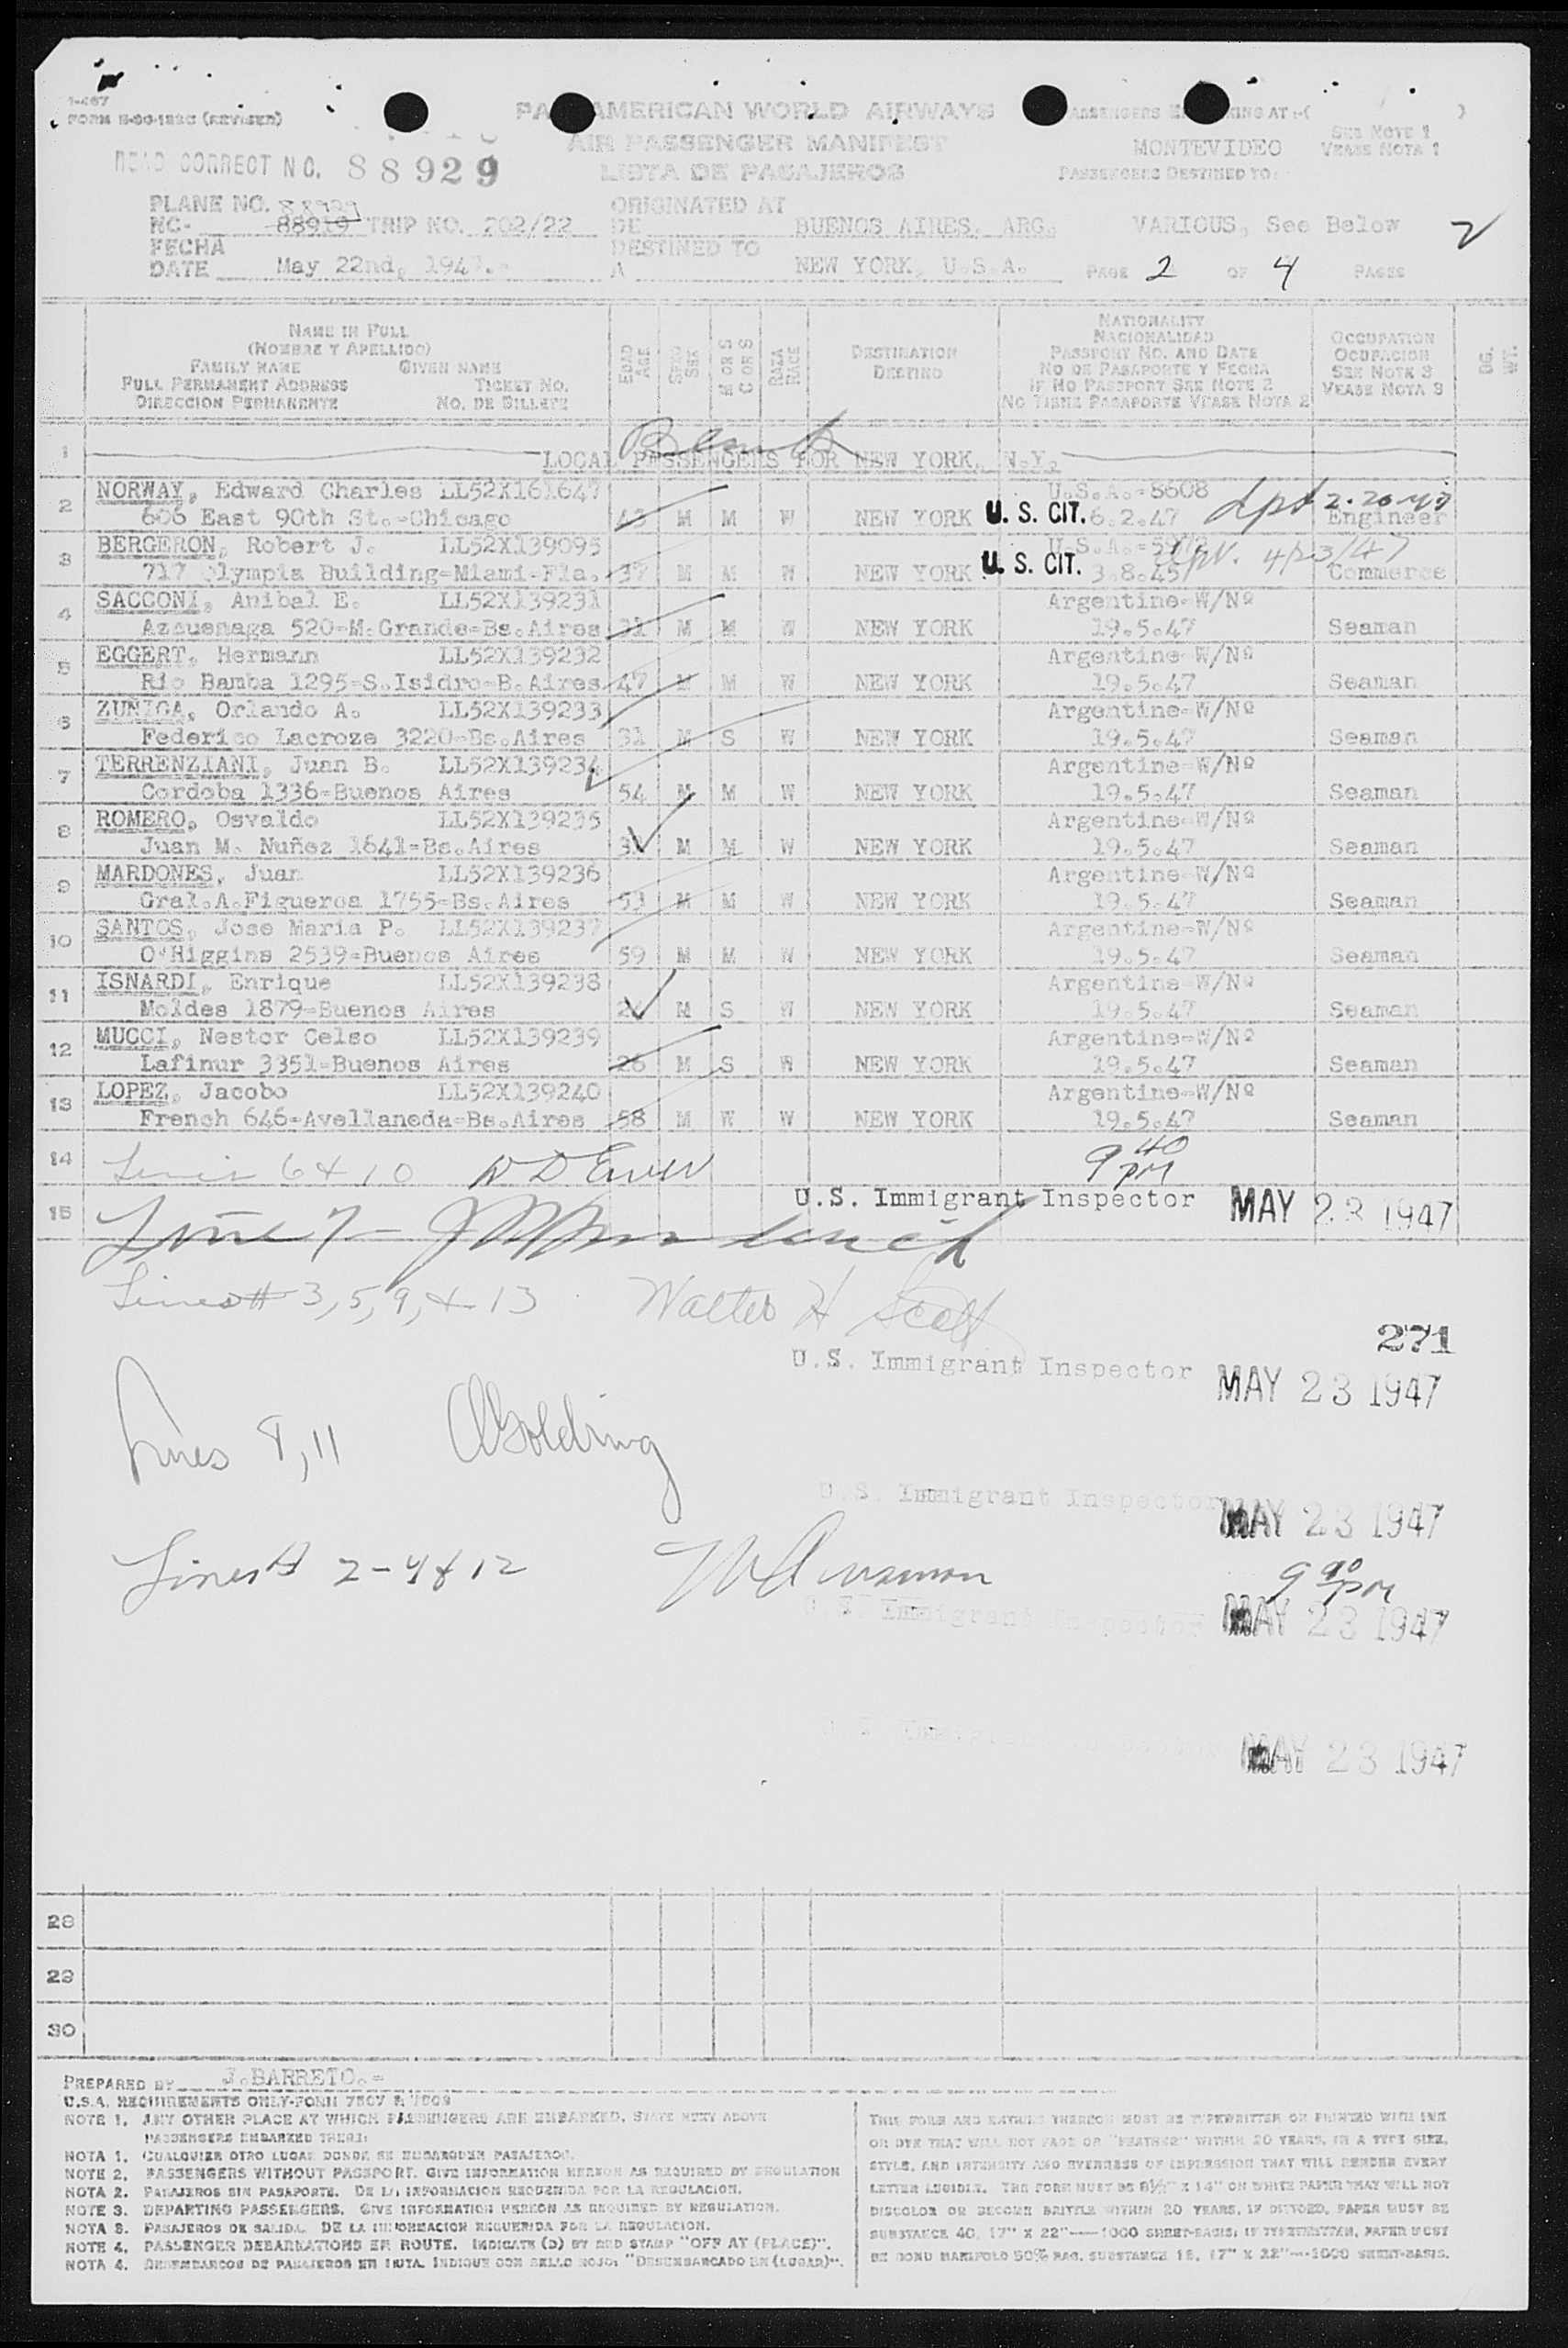 I-467
FORM N-00-182C (REVISED)
PAN AMERICAN WORLD AIRWAYS
AIR PASSENGER MANIFEST
LISTA DE PASAJEROS
READ CORRECT NO. 88929
PASSENGERS EMBARKING AT :-( )
MONTEVIDEO
SEE NOTE 1
VEASE NOTA 1
PASSENGERS DESTINED TO:
PLANE NO. 88929
NC- 88919 TRIP NO. 202/22
ORIGINATED AT
DE BUENOS AIRES, ARG.
VARIOUS, See Below
2
FECHA
DATE May 22nd, 1947.-
DESTINED TO
A NEW YORK, U.S.A.
PAGE 2 OF 4 PAGES
NAME IN FULL
(NOMBRE Y APELLIDO)
FAMILY NAME GIVEN NAME
FULL PERMANENT ADDRESS TICKET NO.
DIRECCION PERMANENTE NO. DE BILLETE
EDAD AGE
SEXO SEX
M OR S C OR S
RAZA RACE
DESTINATION
DESTINO
NATIONALITY
NACIONALIDAD
PASSPORT NO. AND DATE
NO DE PASAPORTE Y FECHA
IF NO PASSPORT SEE NOTE 2
NO TIENE PASAPORTE VEASE NOTA 2
OCCUPATION
OCUPACION
SEE NOTE 3
VEASE NOTA 3
BG. WT.
1 LOCAL PASSENGERS FOR NEW YORK, N.Y.
2 NORWAY, Edward Charles LL52X161647 U.S.A.-8608
606 East 90th St.-Chicago 43 M M W NEW YORK U. S. CIT. 6.2.47 Engineer
3 BERGERON, Robert J. LL52X139095 4/23/47
717 Olympia Building-Miami-Fla. 37 M M W NEW YORK U. S. CIT. 3.8.45 Commerce
4 SACCONI, Anibal E. LL52X139231 Argentine-W/Nº
Azcuenaga 520-M.Grande-Bs.Aires 31 M M W NEW YORK 19.5.47 Seaman
5 EGGERT, Hermann LL52X139232 Argentine-W/Nº
Rio Bamba 1295-S.Isidro-B.Aires 47 M M W NEW YORK 19.5.47 Seaman
6 ZUÑIGA, Orlando A. LL52X139233 Argentine-W/Nº
Federico Lacroze 3220-Bs.Aires 31 M S W NEW YORK 19.5.47 Seaman
7 TERRENZIANI, Juan B. LL52X139234 Argentine-W/Nº
Cordoba 1336-Buenos Aires 54 M M W NEW YORK 19.5.47 Seaman
8 ROMERO, Osvaldo LL52X139235 Argentine-W/Nº
Juan M. Nuñez 1641-Bs.Aires M M W NEW YORK 19.5.47 Seaman
9 MARDONES, Juan LL52X139236 Argentine-W/Nº
Gral.A.Figueroa 1755-Bs.Aires 53 M M W NEW YORK 19.5.47 Seaman
10 SANTOS, Jose Maria P. LL52X139237 Argentine-W/Nº
O'Higgins 2539-Buenos Aires 59 M M W NEW YORK 19.5.47 Seaman
11 ISNARDI, Enrique LL52X139238 Argentine-W/Nº
Moldes 1879-Buenos Aires M S W NEW YORK 19.5.47 Seaman
12 MUCCI, Nestor Celso LL52X139239 Argentine-W/Nº
Lafinur 3351-Buenos Aires 26 M S W NEW YORK 19.5.47 Seaman
13 LOPEZ, Jacobo LL52X139240 Argentine-W/Nº
French 646-Avellaneda-Bs.Aires 58 M W W NEW YORK 19.5.47 Seaman
14 Lines 6 & 10 9 40 PM
U.S. Immigrant Inspector MAY 23 1947
15
Line 7-
Lines # 3, 5, 9, & 13 Walter H Scott
271
U.S. Immigrant Inspector MAY 23 1947
Lines 8, 11 A Golding
U.S. Immigrant Inspector MAY 23 1947
Lines # 2-4 & 12
9 40 PM
U.S. Immigrant Inspector MAY 23 1947
MAY 23 1947
28
29
30
PREPARED BY J.BARRETO.-
U.S.A. REQUIREMENTS ONLY-FORM 7507 & 7509
NOTE 1. ANY OTHER PLACE AT WHICH PASSENGERS ARE EMBARKED, STATE NEXT ABOVE
PASSENGERS EMBARKED THERE:
NOTA 1. CUALQUIER OTRO LUGAR DONDE SE EMBARQUEN PASAJEROS.
NOTE 2. PASSENGERS WITHOUT PASSPORT. GIVE INFORMATION HEREON AS REQUIRED BY REGULATION
NOTA 2. PASAJEROS SIN PASAPORTE. DE LA INFORMACION REQUERIDA POR LA REGULACION.
NOTE 3. DEPARTING PASSENGERS. GIVE INFORMATION HEREON AS REQUIRED BY REGULATION.
NOTA 3. PASAJEROS DE SALIDA. DE LA INFORMACION REQUERIDA POR LA REGULACION.
NOTE 4. PASSENGER DEBARKATIONS EN ROUTE. INDICATE (D) BY RED STAMP "OFF AT (PLACE)".
NOTA 4. DESEMBARCOS DE PASAJEROS EN RUTA. INDIQUE CON SELLO ROJO: "DESEMBARCADO EN (LUGAR)".
THIS FORM AND ENTRIES THEREON MUST BE TYPEWRITTEN OR PRINTED WITH INK
OR DYE THAT WILL NOT FADE OR "FEATHER" WITHIN 20 YEARS, IN A TYPE SIZE,
STYLE, AND INTENSITY AND EVENNESS OF IMPRESSION THAT WILL RENDER EVERY
LETTER LEGIBLE. THE FORM MUST BE 8½" X 14" ON WHITE PAPER THAT WILL NOT
DISCOLOR OR BECOME BRITTLE WITHIN 20 YEARS, IF DITTOED, PAPER MUST BE
SUBSTANCE 40, 17" X 22"-1000 SHEET-BASIS; IF TYPEWRITTEN, PAPER MUST
BE BOND MANIFOLD 50% RAG, SUBSTANCE 18, 17" X 22"-1000 SHEET-BASIS.